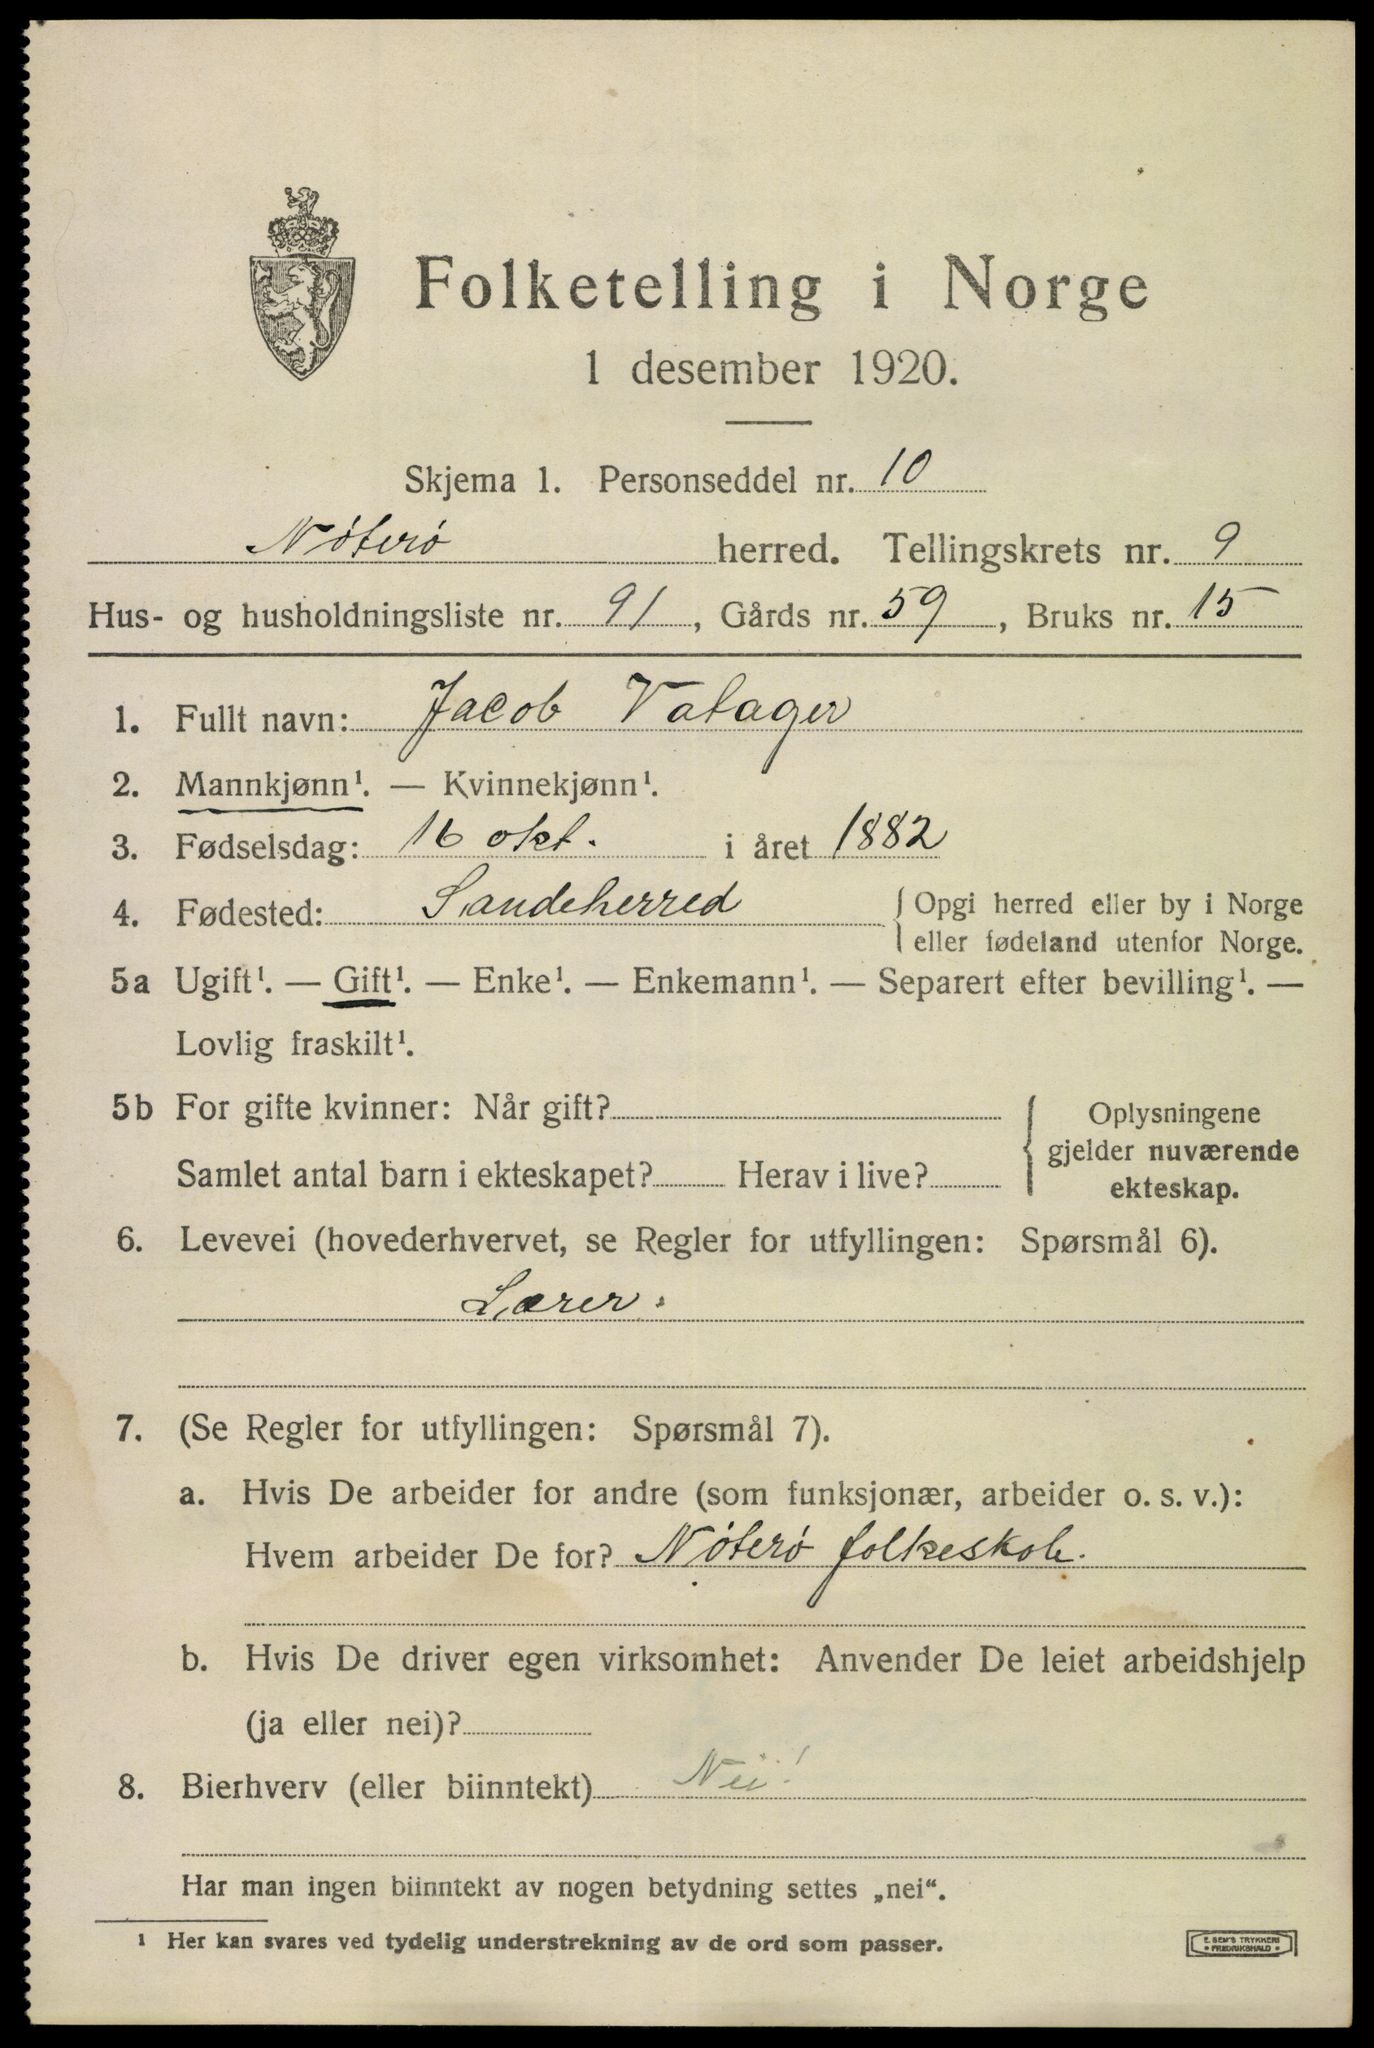 Folketelling i Norge
1 desember 1920.
Skjema 1. Personseddel nr. 10
Nøterø herred. Tellingskrets nr. 9
Hus- og husholdningsliste nr. 91, Gårds nr. 59, Bruks nr. 15
1. Fullt navn: Jacob Valager
2. Mannkjønn¹. — Kvinnekjønn¹.
3. Fødselsdag: 16 okt. i året 1882
4. Fødested: Sandeherred { Opgi herred eller by i Norge
eller fødeland utenfor Norge.
5a Ugift¹. — Gift¹. — Enke¹. — Enkemann¹. — Separert efter bevilling¹. —
Lovlig fraskilt¹.
5b For gifte kvinner: Når gift? { Oplysningene
gjelder nuværende
Samlet antal barn i ekteskapet? Herav i live?
ekteskap.
6. Levevei (hovederhvervet, se Regler for utfyllingen: Spørsmål 6).
Lærer.
7. (Se Regler for utfyllingen: Spørsmål 7).
a. Hvis De arbeider for andre (som funksjonær, arbeider o. s. v.):
Hvem arbeider De for? Nøterø folkeskole.
b. Hvis De driver egen virksomhet: Anvender De leiet arbeidshjelp
(ja eller nei)?
8. Bierhverv (eller biinntekt) Nei!
Har man ingen biinntekt av nogen betydning settes „nei“.
¹ Her kan svares ved tydelig understrekning av de ord som passer.
E. SEM'S TRYKKERI
• FREDRIKSHALD •